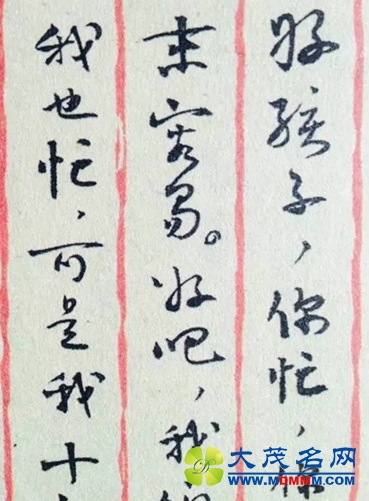 好孩子，你忙，你
来容易。好吧，我
我也忙，可是我十
大茂名网
www.MDMMM.com